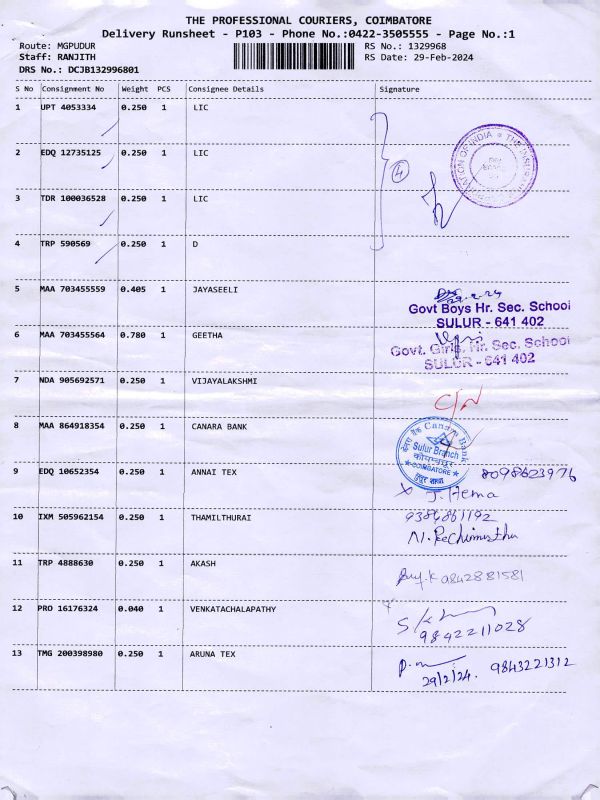 THE PROFESSIONAL COURIERS, COIMBATORE
Delivery Runsheet - P103 - Phone No.:0422-3505555 - Page No.:1
Route: MGPUDUR RS No.: 1329968
Staff: RANJITH RS Date: 29-Feb-2024
DRS No.: DCJB132996801
S No Consignment No Weight PCS Consignee Details Signature
1 UPT 4053334 0.250 1 LIC
2 EDQ 12735125 0.250 1 LIC
4
3 TDR 100036528 0.250 1 LIC
4 TRP 590569 0.250 1 D
5 MAA 703455559 0.405 1 JAYASEELI
29.2.24
Govt Boys Hr. Sec. School
SULUR - 641 402
6 MAA 703455564 0.780 1 GEETHA
Govt. Girls. Hr. Sec. School
SULUR - 641 402
7 NDA 905692571 0.250 1 VIJAYALAKSHMI
C/N
8 MAA 864918354 0.250 1 CANARA BANK
Canara Bank
Sulur Branch
COIMBATORE
9 EDQ 10652354 0.250 1 ANNAI TEX
8098623976
J. Hema
10 IXM 505962154 0.250 1 THAMILTHURAI
9384861192
11 TRP 4888630 0.250 1 AKASH
9842881581
12 PRO 16176324 0.040 1 VENKATACHALAPATHY
9842211028
13 TMG 200398980 0.250 1 ARUNA TEX
29/2/24. 9843221312